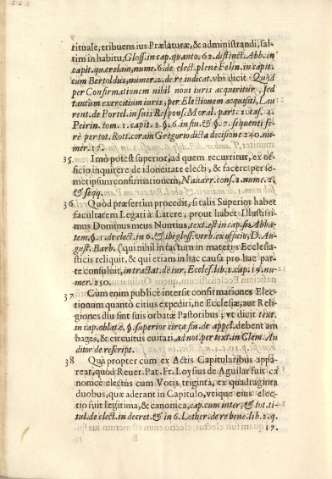 rituale, tribuens ius Prælaturæ, & administrandi, sal-
tim in habitu, Gloss. in cap. quanto, 62. distinct. Abb. in
capit. quærelam, nume. 6. de elect. plenè Felin. in capit.
cum Bertoldus, numer. 2. de re iudicat. vbi dicit: Quod
per Confirmationem nihil noui iuris acquiritur, sed
tantùm exercitium iuris, per Electionem acquisiti, Lau
rent. de Portel. in suis Respons. Moral. part. 1. cas. 4.
Peirin. tom. 1. capit. 2. §. 6. in fin. & §. 7. sequenti fe-
rè per tot. Rott. coram Gregorio dicta decisione 240. nu-
mer. 15.
35. Imò potest superior, ad quem recurritur, ex of-
ficio inquirere de idoneitate electi, & facere per se-
met ipsum confirmationem, Nauarr. cons. 2. nume. 2,
& seqq.
36 Quod præsertim procedit, si talis Superior habet
facultatem Legati à Latere, prout habet Illustrissi-
mus Dominus meus Nuntius, text. est in cap. si Abba-
tem, §. 1. de elect. in 6. & ibi gloss. verb. ex officio, D. Au-
gust. Barb. (qui nihil in factum in materijs Ecclesia-
sticis reliquit, & qui etiam in hac causa pro hac par-
te consuluit, in tractat. de iur. Eccles. lib. 1. cap. 19. nu-
mer. 150.
37 Cum enim publicè intersit confirmationes Elec-
tionum quantò citius expediri, ne Ecclesiæ, aut Reli-
giones diu sint suis orbatæ Pastoribus; vt dicit text.
in cap. oblatæ, §. superior circa fin. de appel. debent am
bages, & circuitus euitari, ad not. per text. in Clem. Au
ditor de rescript.
38 Qua propter cum ex Actis Capitularibus appa-
reat, quòd Reuer. Pat. Fr. Loysius de Aguilar fuit ca
nonicè electus cum Votis triginta, ex quadraginta
duobus, quæ aderant in Capitulo, vtique eius elec-
tio fuit legitima, & canonica, cap. cum inter, & tot. ti-
tul. de elect. in decret. & in 6. Lother. de re bene. lib. 2. q.
17.